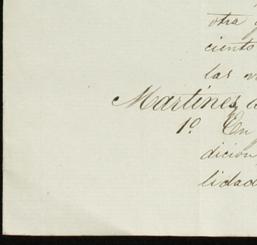 otra
ciento
las
Martinez
1º En
dicion
lidad